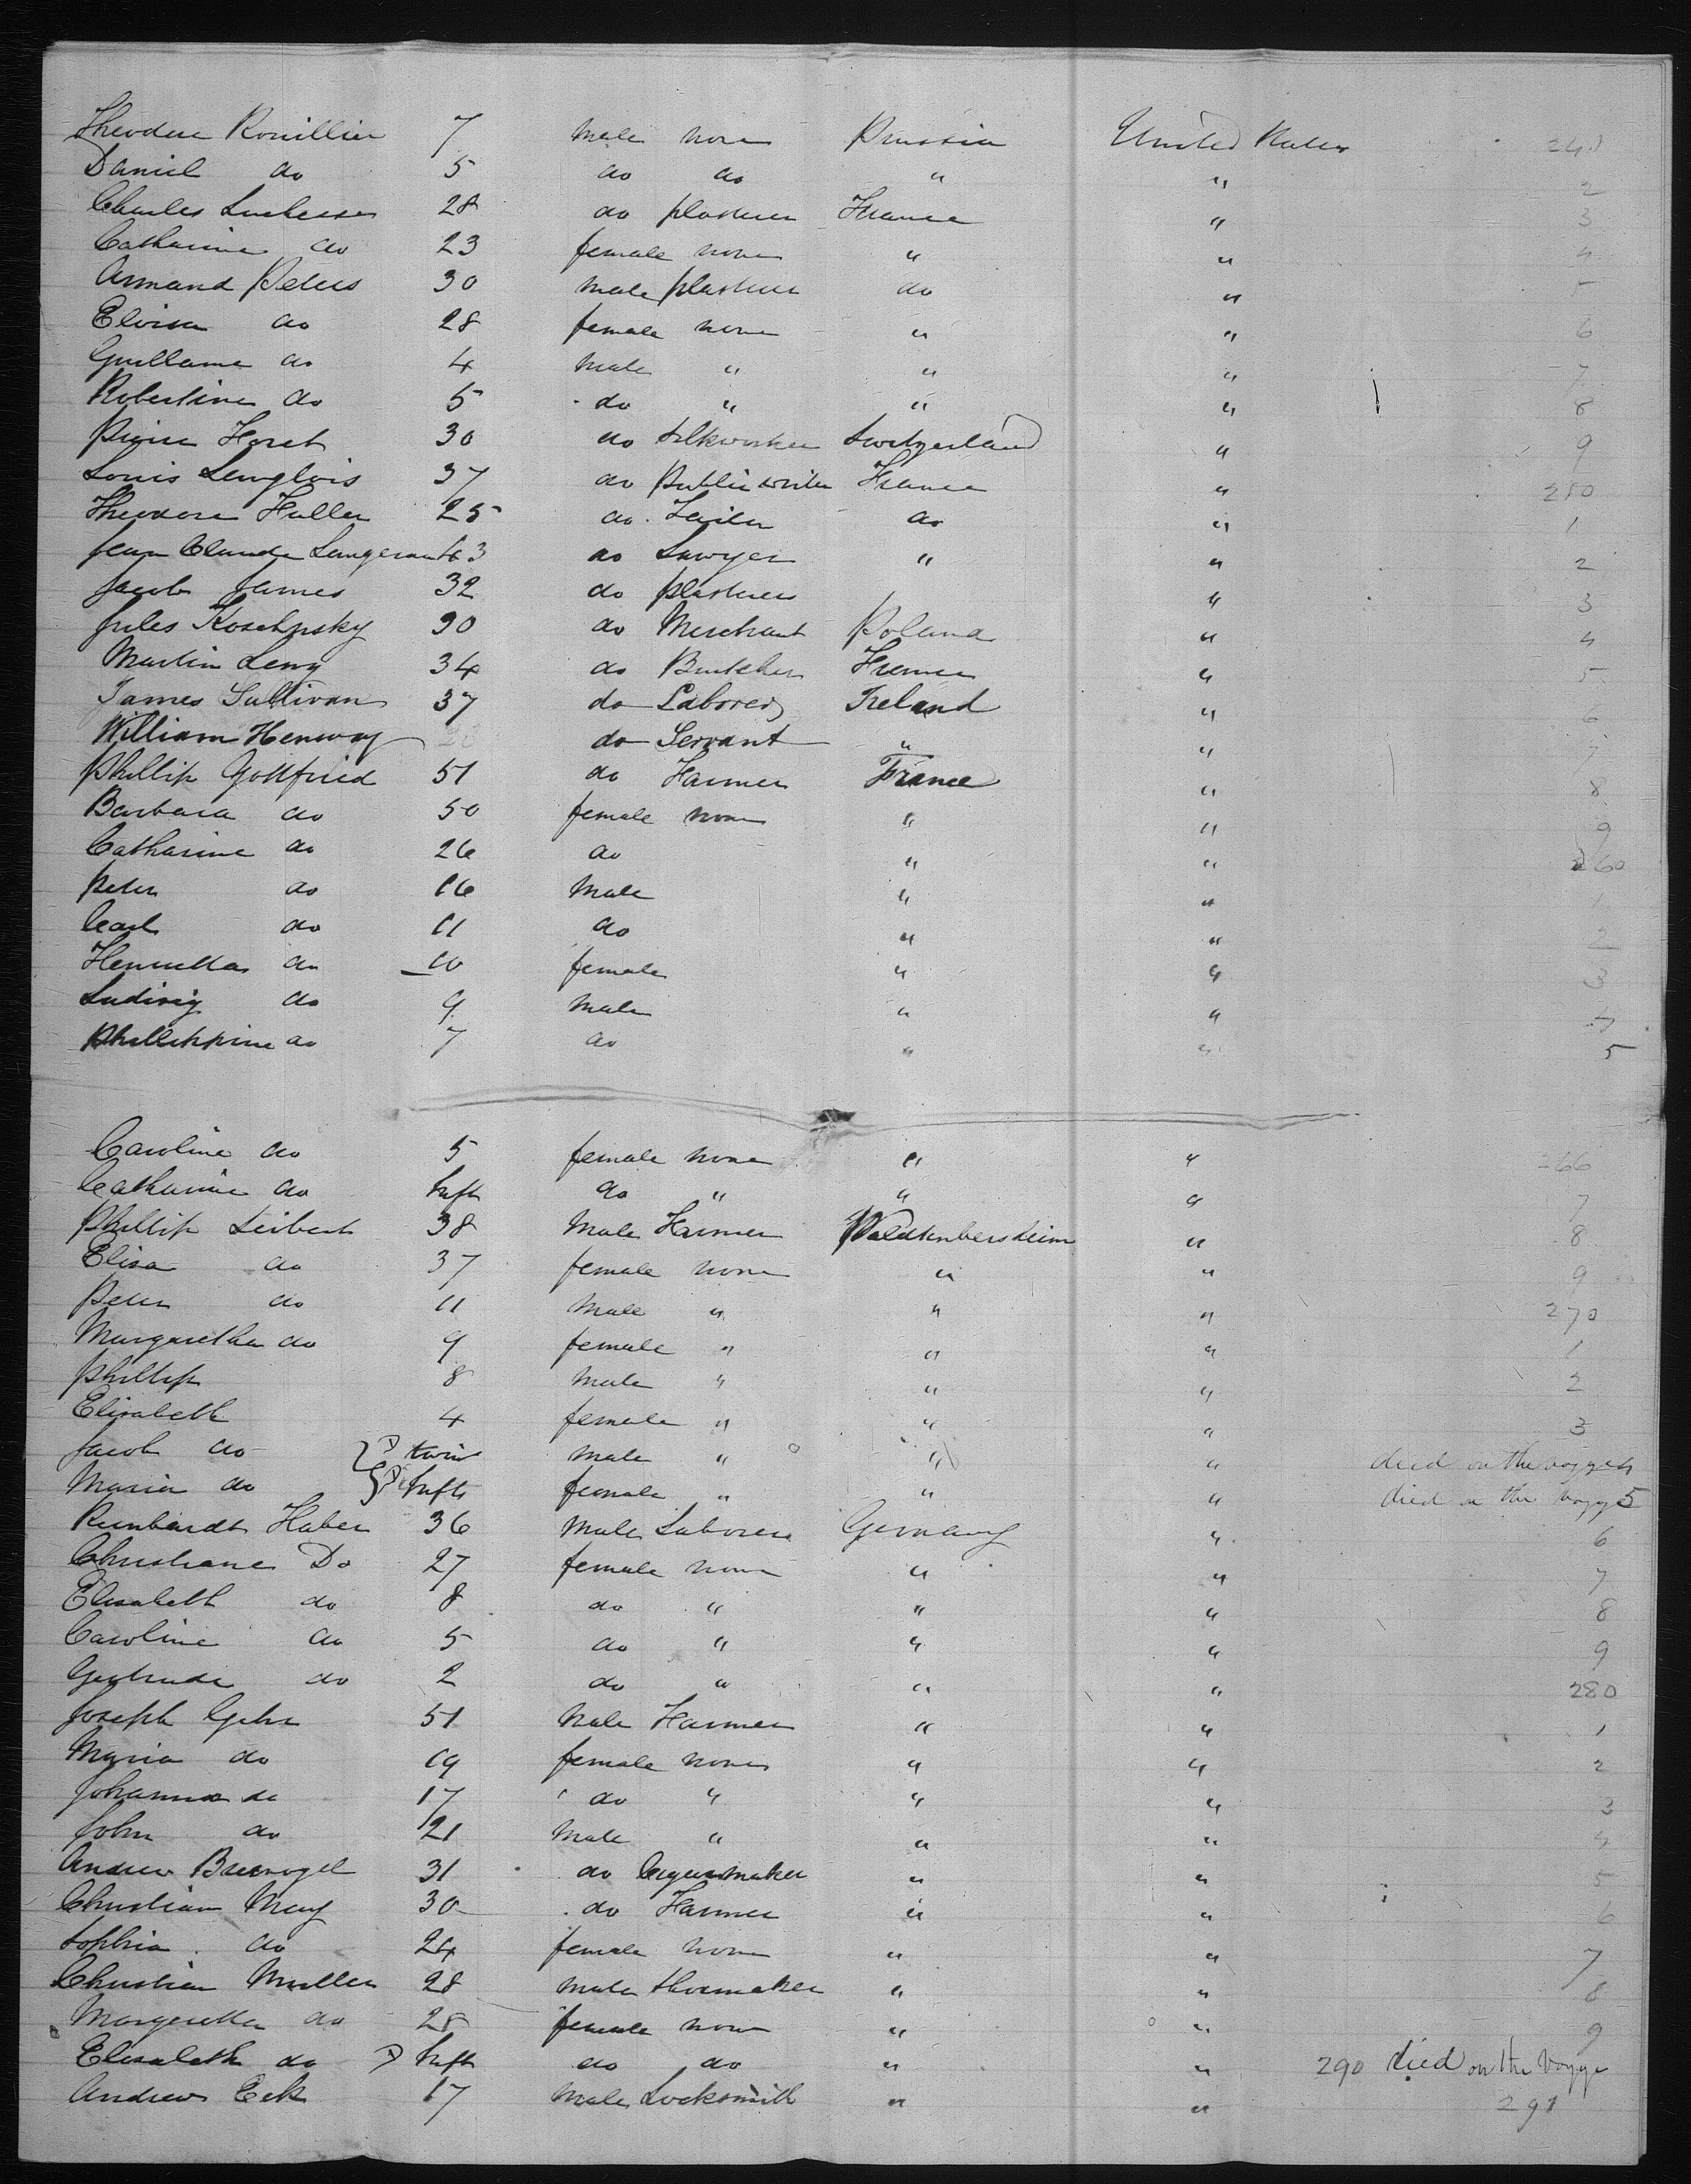 Theodore Rouillier 7 male none Prussia United States 241
Daniel do 5 do do " " 2
Charles Luchesse 28 do plasterer France " 3
Catharine do 23 female none " " 4
Armand Peters 30 male plasterer do " 5
Eloisa do 28 female none " " 6
Guillaume do 4 male " " " 7
Robertine do 5 do " " " 8
Pierre Horet 30 do Silkworker Switzerland " 9
Louis Langlois 37 do Public writer France " 250
Theodore Haller 25 do Tailor do " 1
Jean Claude 43 do Lawyer " " 2
Jacob James 32 do plasterer " " 3
Jules 30 do Merchant Poland " 4
Martin Levy 34 do Butcher France " 5
James Sullivan 37 do Laborer Ireland " 6
William Henway 28 do Servant " " 7
Phillip Gottfried 51 do Farmer France " 8
Barbara do 50 female none " " 9
Catharine do 26 do " " 260
Peter do 16 Male " " 1
Carl do 11 do " " 2
Henrietta do 10 female " " 3
Ludwig do 9 male " " 4
Phillippine do 7 do " " 5
Caroline do 5 female none " " 266
Catharine do Inft do " " " 7
Phillip Seibert 38 Male Farmer " 8
Elisa do 37 female none " " 9
Peter do 11 Male " " " 270
Margaretha do 9 female " " " 1
Phillip 8 Male " " " 2
Elisabeth 4 female " " " 3
Jacob do twin male " " " died on the voyage 4
Maria do Infts female " " " died on the voyge 5
Reinhardt Haber 36 Male Laborer Germany " 6
Christiane Do 27 female none " " 7
Elisabeth do 8 do " " " 8
Caroline do 5 do " " " 9
Gertrude do 2 do " " " 280
Joseph 51 Male Farmer " " 1
Maria do 19 female none " " 2
Johanna do 17 do " " " 3
John do 21 Male " " " 4
Andrew 31 do Cigarmaker " " 5
Christian May 30 do Farmer " " 6
Sophia do 24 female none " " 7
Christian Muller 28 male Shoemaker " " 8
Margaretta do 28 female none " " 9
Elisabeth do Inft do do " " 290 died on the Voyge
Andrew Eck 17 Male Locksmith " " 291